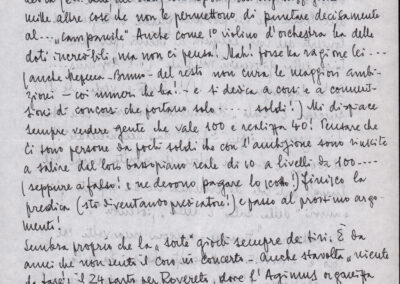 mille altre cose che non le permettono di puntare decisamente
al.... "campanile" Anche come 1° violino d'orchestra ha delle
doti incredibili, ma non ci pensa! Mah! forse ha ragione lei....
(anche Bruno - del resto non cura le maggiori ambi-
zioni - coi numeri che ha! - e si dedica a cori e a
di concorsi che portano solo..... soldi!) Mi dispiace
sempre vedere gente che vale 100 e realizza 40! Pensare che
ci sono persone da pochi soldi che con l'ambizione sono riuscite
a salire del loro bassopiano reale di 10 a livelli da 100....
(seppure a falso! e ne devono pagare lo scotto!) finisco la
predica (sto diventando predicatore!) e passo al prossimo argo-
mento!
Sembra proprio che la "sorte" giochi sempre dei tiri. È da
anni che non senti il coro in concerto. Anche stavolta "niente
da fare"! il 24 parto per Rovereto, dove l'Agimus organizza